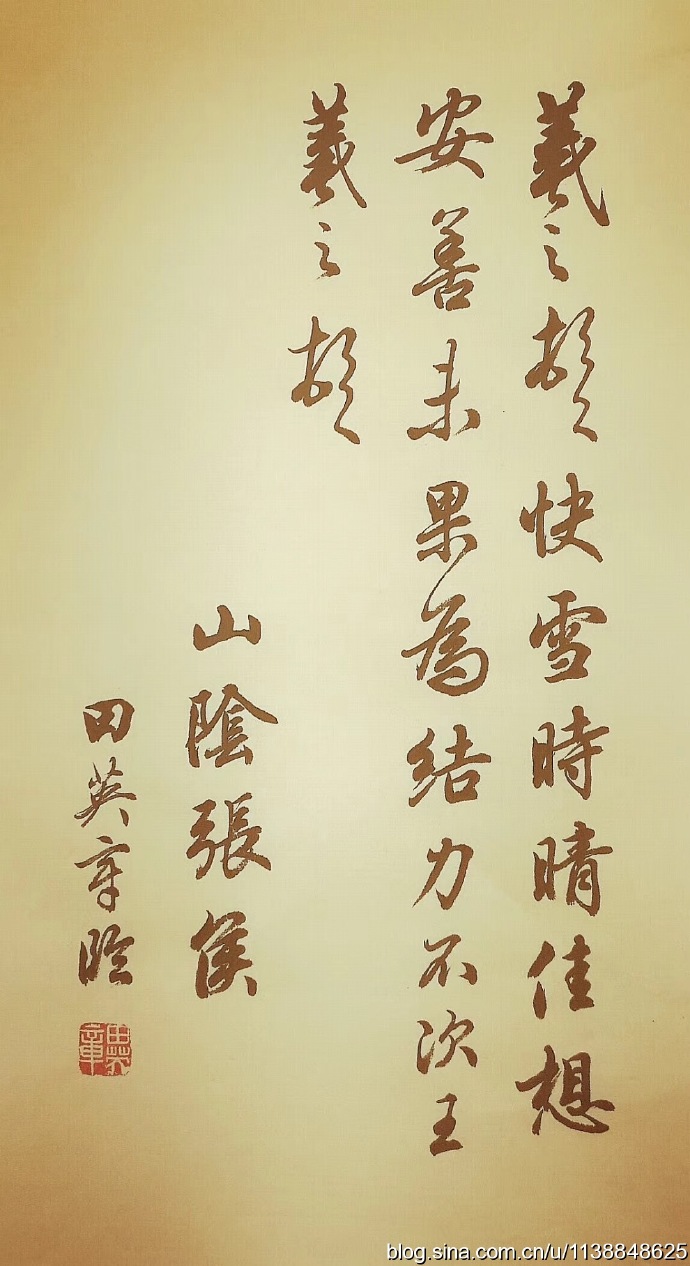 羲之頓快雪時晴佳想
安善未果為結力不次王
羲之頓
山陰張侯
田英章臨
田英章
blog.sina.com.cn/u/1138848625